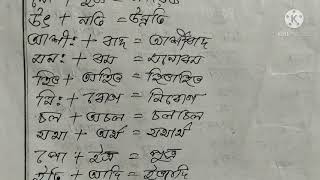 উৎ + নতি = উন্নতি
আশীঃ + বাদ = আশীর্বাদ
মনঃ + রম = মনোরম
হিত + অহিত = হিতাহিত
নিঃ + রোগ = নিরোগ
চল + অচল = চলাচল
যথা + অর্থ = যথার্থ
ইতি + আদি = ইত্যাদি
KINEMASTER